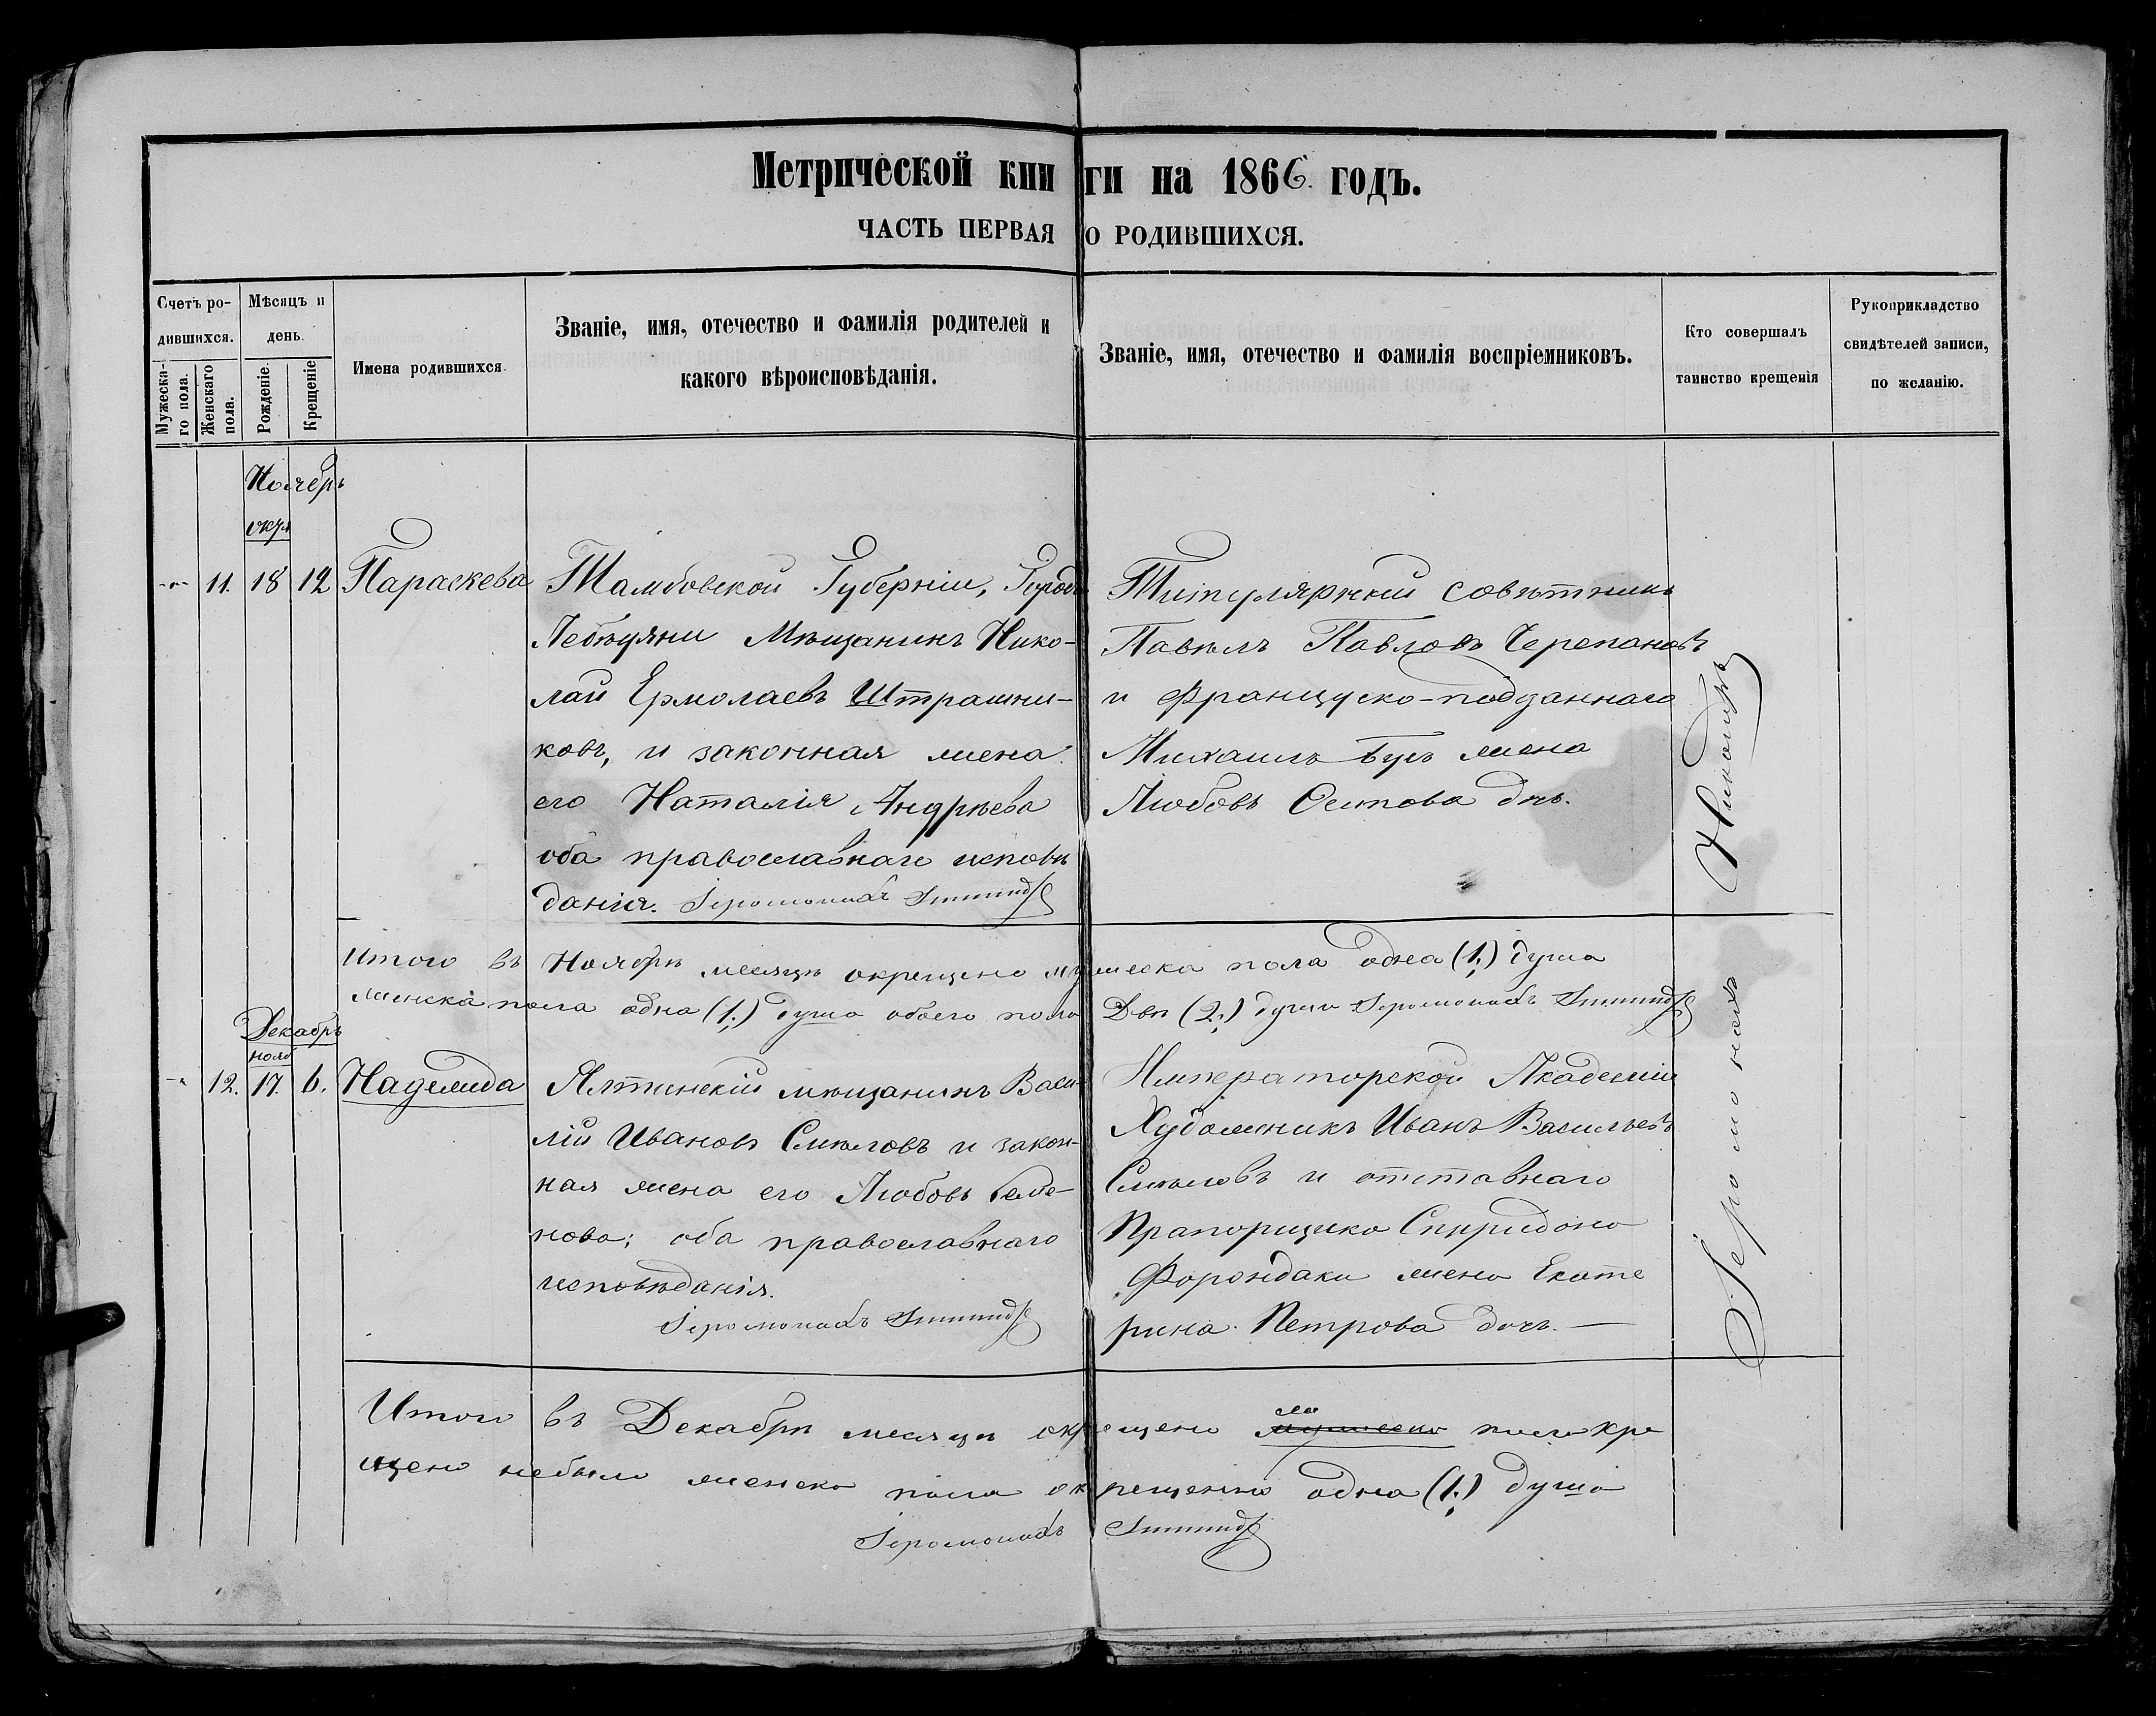 Метрической книги на 1866. годъ.
ЧАСТЬ ПЕРВАЯ О РОДИВШИХСЯ.
Счетъ ро-
дившихся.
Мужеска-
го пола.
Женскаго
пола.
Мѣсяцъ и
день.
Рожденіе.
Крещеніе
Имена родившихся.
Званіе, имя, отечество и фамилія родителей и
какого вѣроисповѣданія.
Званіе, имя, отечество и фамилія воспріемниковъ.
Кто совершалъ
таинство крещенія
Рукоприкладство
свидѣтелей записи,
по желанію.
Ноябрь
11. 18 12 Параскева
Тамбовской Губерніи, Города
Лебедяни Мѣщанинъ Нико-
лай Ермолаевъ Штрашни-
ковъ, и законная жена
его Наталія Андрѣева
оба православнаго исповѣ
данія. Іеромонахъ
Титулярный совѣтникъ
Павелъ Павловъ Черепановъ
и Французско-подданнаго
Михаилъ Бухъ жена
Любовь Осипова дчь.
Итого въ Ноябрѣ месяцѣ окрещено мужеска пола одна (1.) душа
женска пола одна (1.) душа обоего пола Двѣ (2.) души Іеромонахъ
Декабрь
нояб
12. 17. 6. Надежда
Ялтинскій мѣщанинъ Васи-
лій Ивановъ Смѣловъ и закон-
ная жена его Любовь Семе-
нова; оба православнаго
исповѣданія.
Іеромонахъ
Императорской Академіи
Художникъ Иванъ Васильевъ
Смѣловъ и отставнаго
Прапорщика Спиридона
Форондаки жена Екате
рина Петрова дочь. —
Іеромонахъ Никандръ
Итого въ Декабрѣ месяцѣ окрещено мужеска пола кре
щено небыло женска пола окрещенна одна (1.) душа
Іеромонахъ